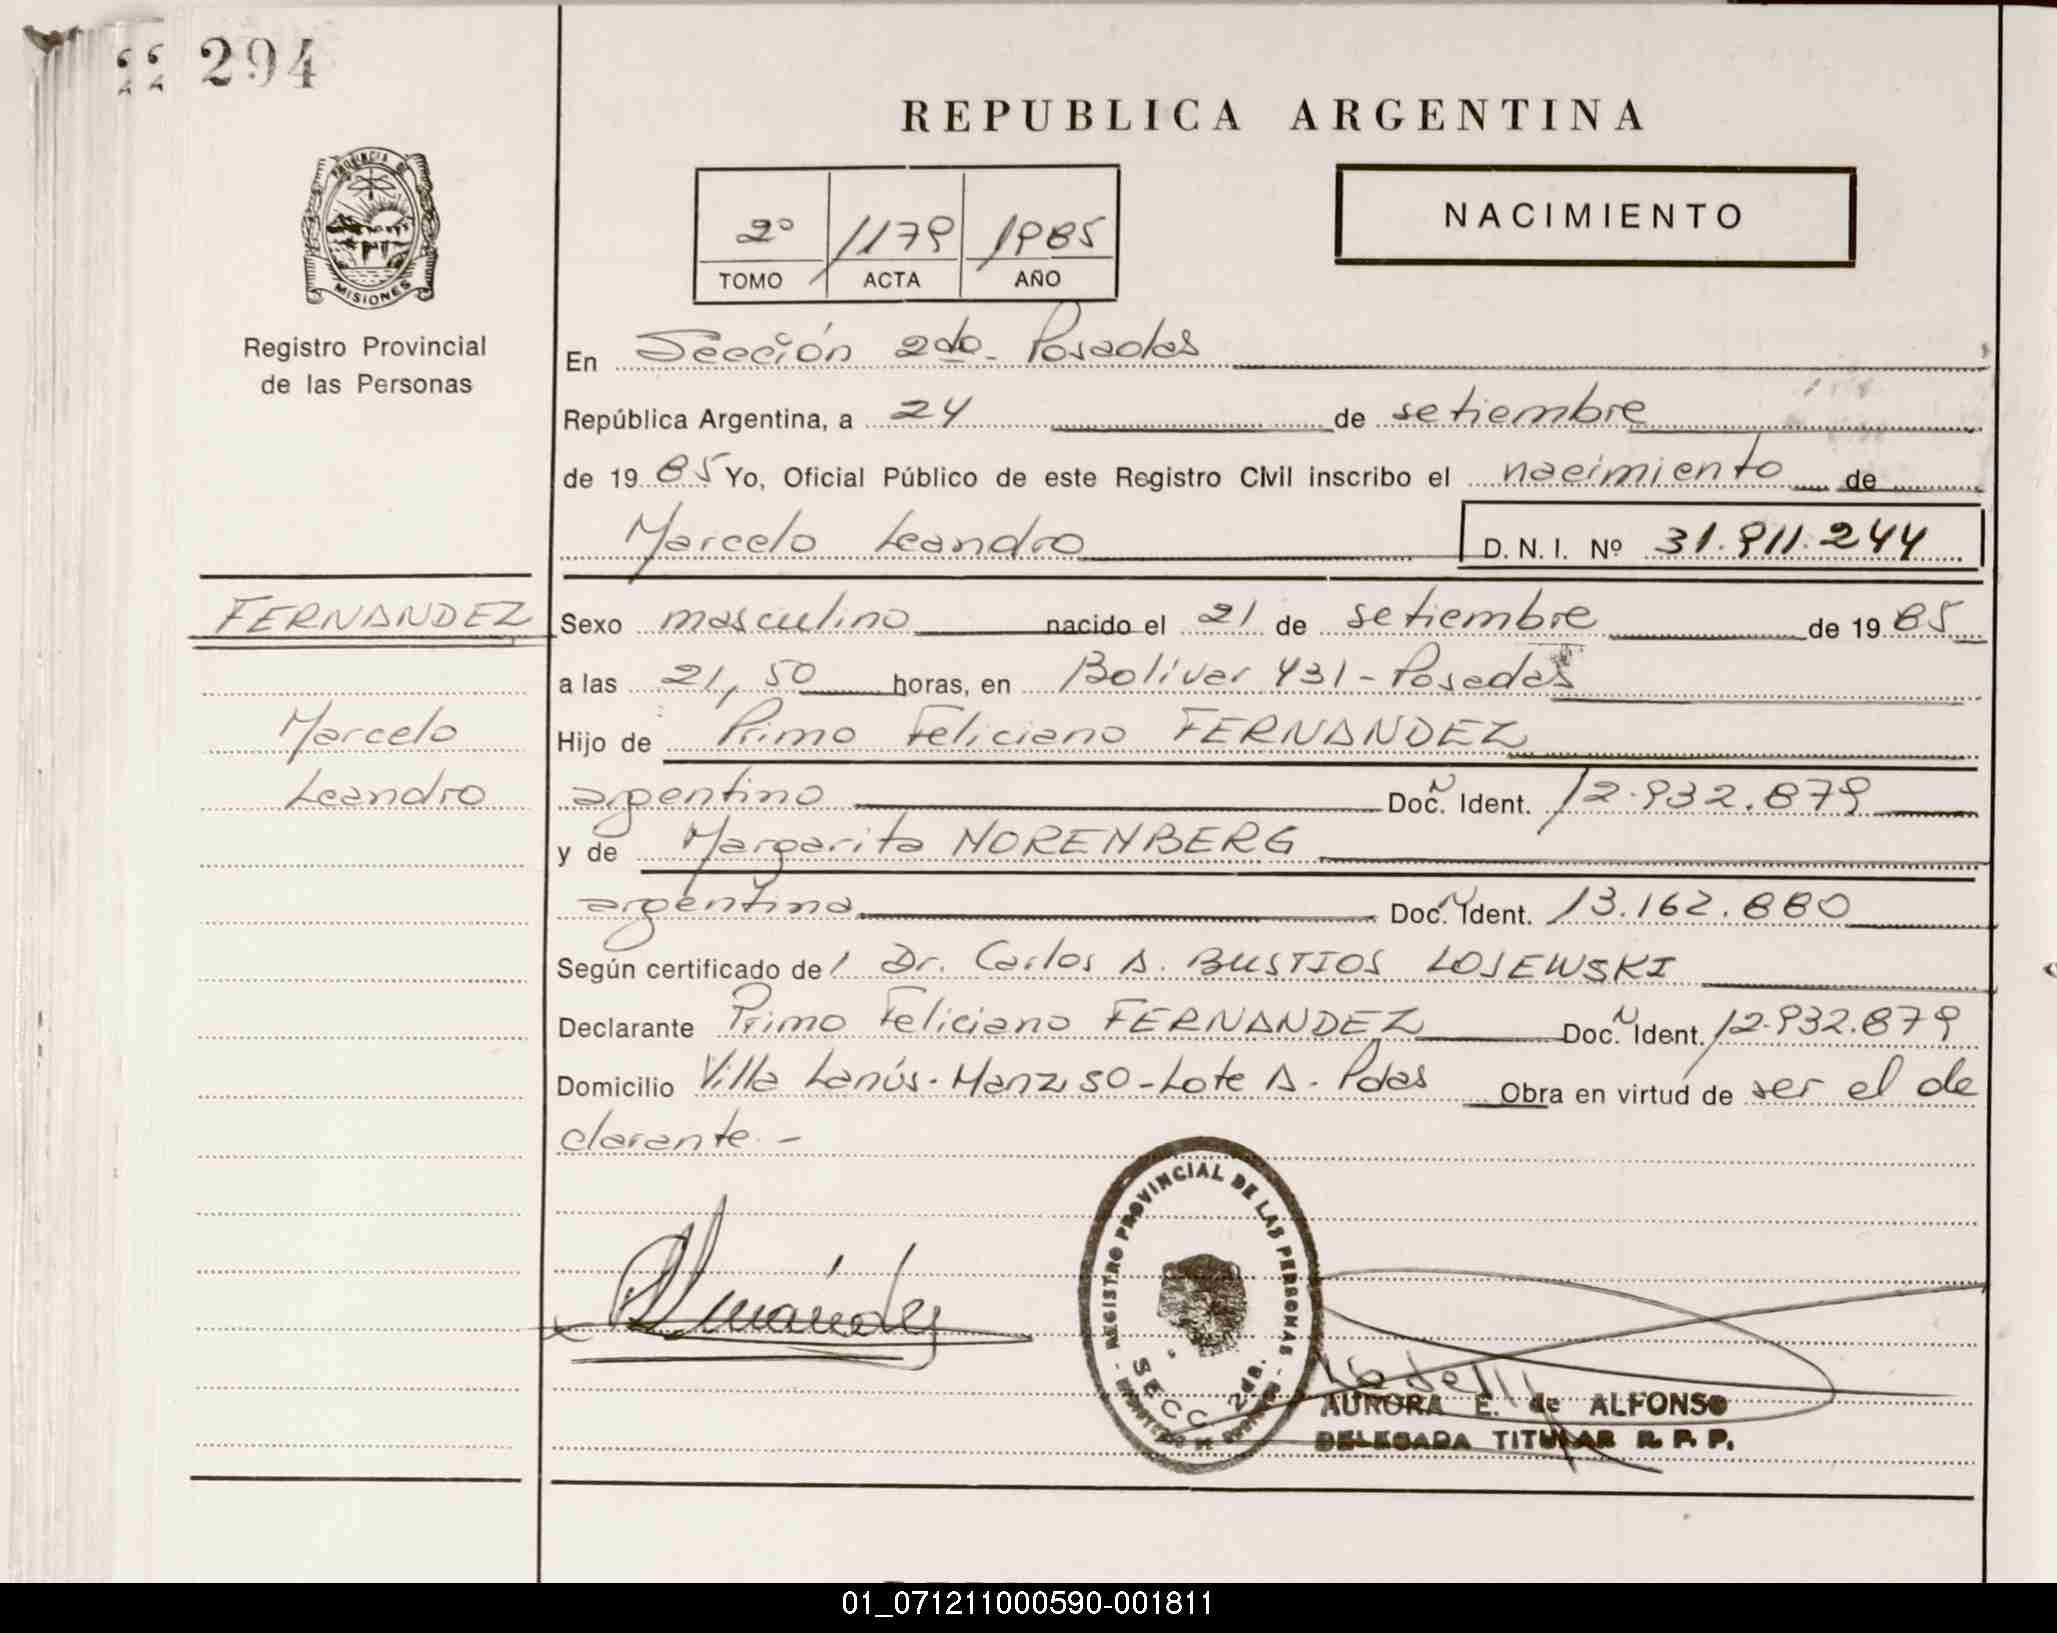 294
REPUBLICA ARGENTINA
2° 1179 1985
TOMO ACTA AÑO
NACIMIENTO
PROVINCIA DE
MISIONES
Registro Provincial
de las Personas
En Sección 2da - Posadas
República Argentina, a 24 de setiembre
de 1985 Yo, Oficial Público de este Registro Civil inscribo el nacimiento de
Marcelo Leandro D. N. I. Nº 31.911.244
FERNANDEZ
Marcelo
Leandro
Sexo masculino nacido el 21 de setiembre de 1985
a las 21,50 horas, en Bolívar 431 - Posadas
Hijo de Primo Feliciano FERNANDEZ
argentino Doc. N Ident. 12.932.879
y de Margarita NORENBERG
argentina Doc. N Ident. 13.162.880
Según certificado del Dr. Carlos A. BUSTIOS LOSEWSKI
Declarante Primo Feliciano FERNANDEZ Doc. N Ident. 12.932.879
Domicilio Villa Lanús - Manz. 50 - Lote A - Pdas Obra en virtud de ser el de
clarante. -
REGISTRO PROVINCIAL DE LAS PERSONAS
SECC. 2da.
AURORA E. de ALFONSO
DELEGADA TITULAR R. P. P.
01_071211000590-001811